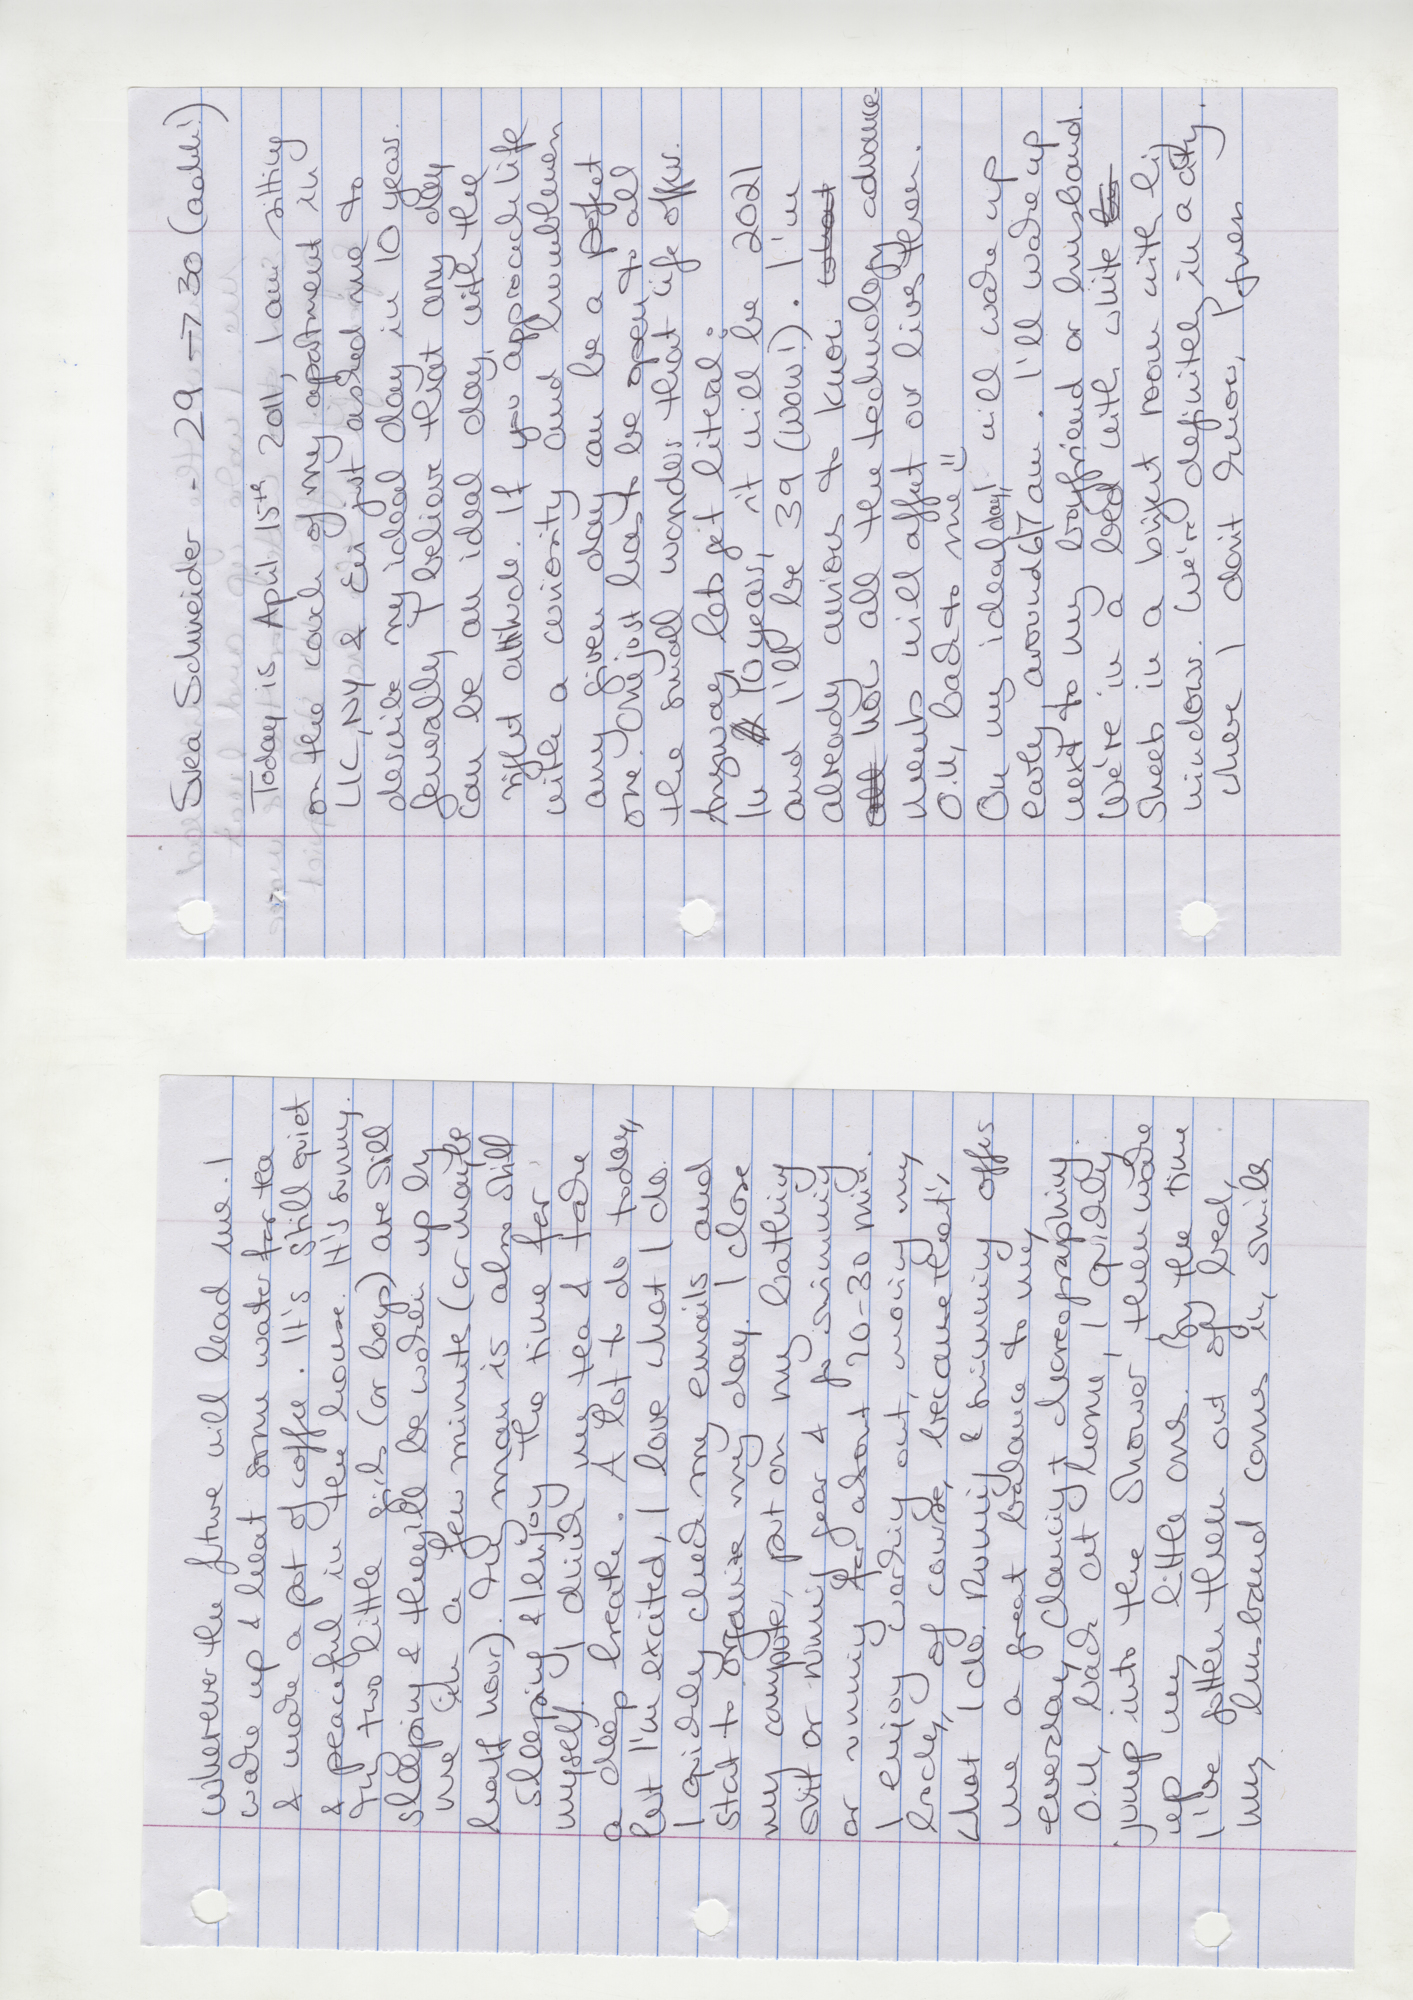 Svea Schneider - 29 → 30 (aahh!)
Today is April 15th 2011, I am sitting
on the couch of my apartment in
LIC, NY & Eri just asked me to
describe my ideal day in 10 years.
Generally, I believe that any day
can be an ideal day, with the
right attitude. If you approach life
with a curiosity and humbleness
any given day can be a perfect
one. One just has to be open to all
the small wonders that life offers.
Anyway, lets get literal:
In 10 years, it will be 2021
and I'll be 39 (wow!). I'm
already curious to know what
all how all the technology advance-
ments will affect our lives then.
O.k, back to me :)
On my ideal day, I will wake up
early, around 6/7 am. I'll wake up
next to my boyfriend or husband.
We're in a bed with white
sheets in a bright room with big
windows. We're definitely in a city,
where I don't know, I guess
wherever the future will lead me. I
wake up & heat some water for tea
& make a pot of coffee. It's still quiet
& peaceful in the house. It's sunny.
My two little girls (or boys) are still
sleeping & they'll be woken up by
me in a few minutes (or maybe
half hour). My man is also still
sleeping & I enjoy the time for
myself. I drink my tea & take
a deep breathe. A lot to do today,
but I'm excited, I love what I do.
I quickly check my emails and
start to organize my day. I close
my computer, put on my bathing
suit or running gear & go swimming
or running for about 20-30 min.
I enjoy working out, moving my
body, of course, because that's
what I do. Running & swimming offers
me a great balance to my
everyday dancing & choreographing.
O.k, back at home, I quickly
jump into the shower, then wake
up my little ones. By the time
I've gotten them out of bed,
my husband comes in, smiles